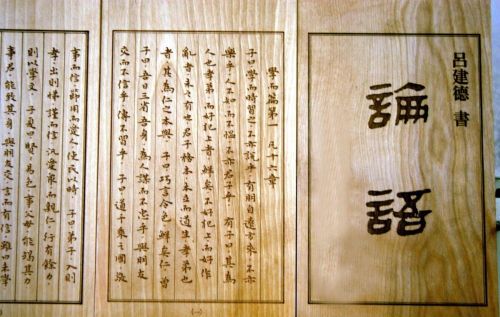 呂建德 書
論語
學而篇第一 凡十六章
子曰學而時習之不亦說乎有朋自遠方來不亦
樂乎人不知而不慍不亦君子乎 有子曰其為
人也孝弟而好犯上者鮮矣不好犯上而好作
亂者未之有也君子務本本立而道生孝弟也
者其為仁之本與 子曰巧言令色鮮矣仁 曾
子曰吾日三省吾身為人謀而不忠乎與朋友
交而不信乎傳不習乎 子曰道千乘之國敬
(一)
事而信節用而愛人使民以時 子曰弟子入則
孝出則悌謹而信汎愛眾而親仁行有餘力
則以學文 子夏曰賢賢易色事父母能竭其力
事君能致其身與朋友交言而有信雖曰未學